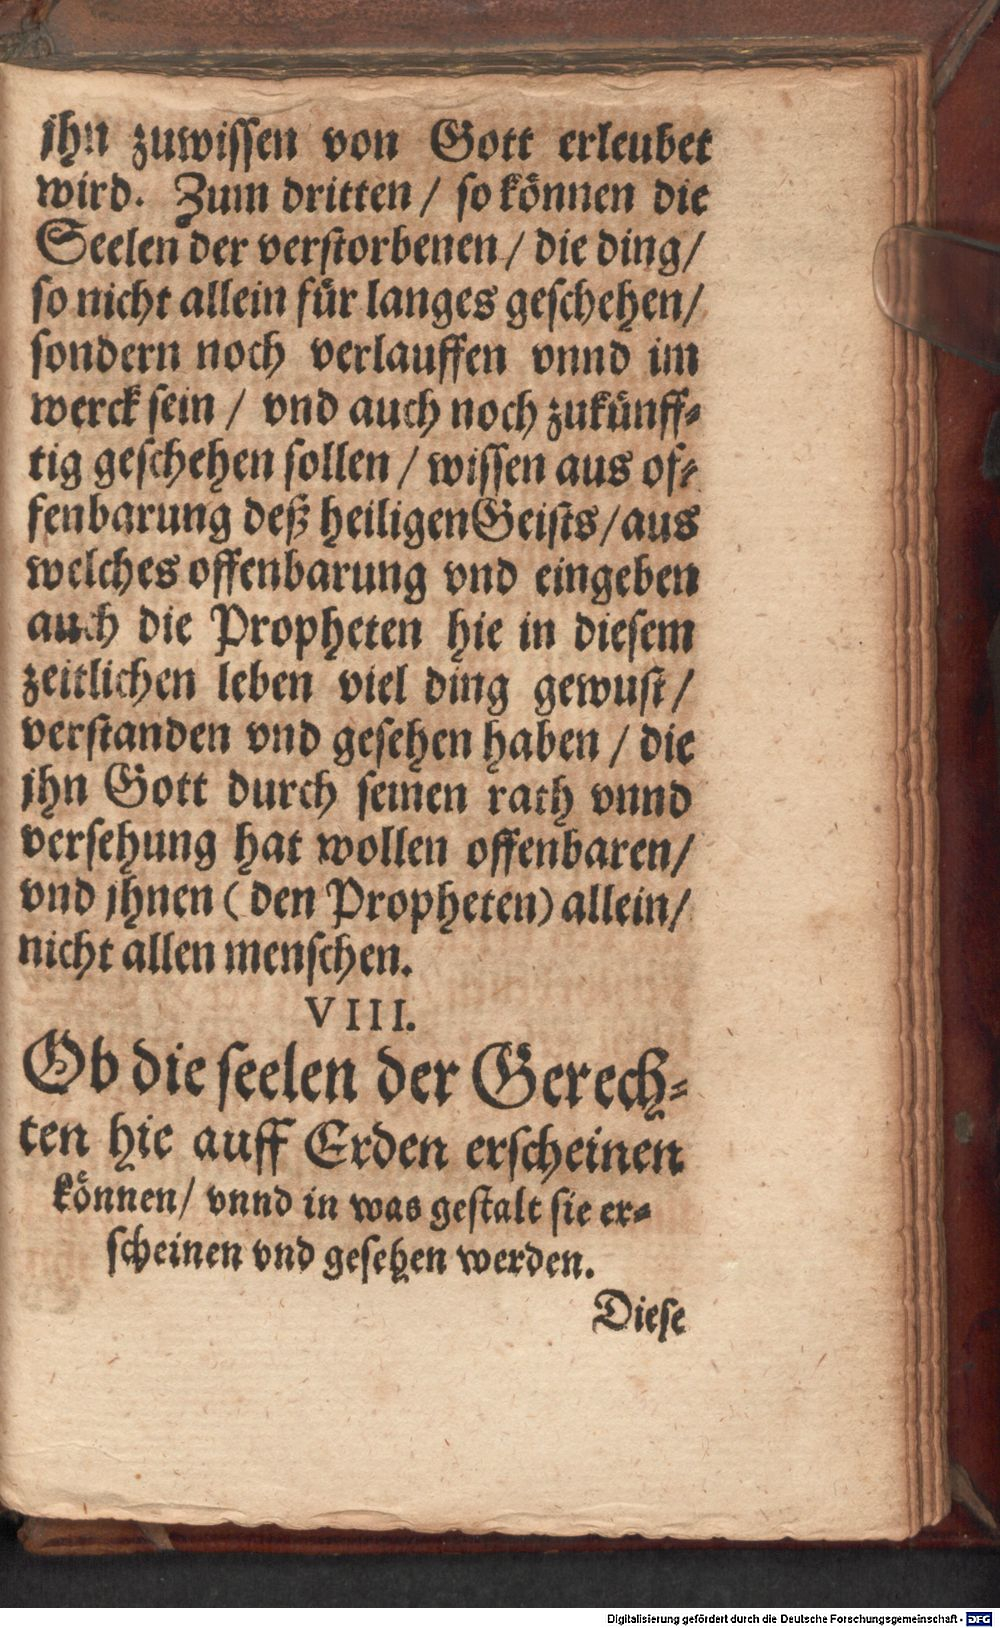 jhn zuwissen von Gott erleubet
wird. Zum dritten / so können die
Seelen der verstorbenen / die ding /
so nicht allein für langes geschehen /
sondern noch verlauffen vnnd im
werck sein / vnd auch noch zukünff-
tig geschehen sollen / wissen aus of-
fenbarung deß heiligen Geists / aus
welches offenbarung vnd eingeben
auch die Propheten hie in diesem
zeitlichen leben viel ding gewust /
verstanden vnd gesehen haben / die
jhn Gott durch seinen rath vnnd
versehung hat wollen offenbaren /
vnd jhnen ( den Propheten) allein /
nicht allen menschen.
VIII.
Ob die seelen der Gerech-
ten hie auff Erden erscheinen
können / vnnd in was gestalt sie er-
scheinen vnd gesehen werden.
Diese
Digitalisierung gefördert durch die Deutsche Forschungsgemeinschaft - DFG